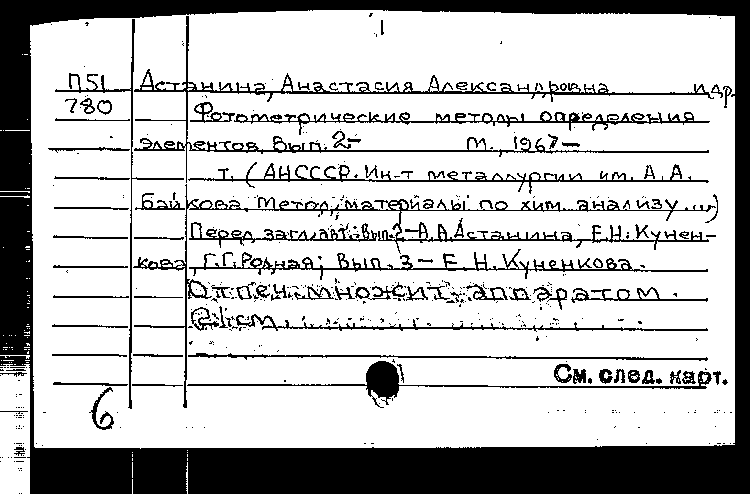 П51 Астанина, Анастасия Александровна и др.
780 Фотометрические методы определения
элементов. Вып. 2- М., 1967-
т. (АН СССР. Ин-т металлургии им. А. А.
Байкова. Метод. материалы по хим. анализу...)
Перед загл. авт.: Вып. 2 - А.А. Астанина, Е.Н. Кунен-
кова, Г.Г. Родная; Вып. 3 - Е.Н. Куненкова.
Отпеч. множит. аппаратом.
См. след. карт.
6